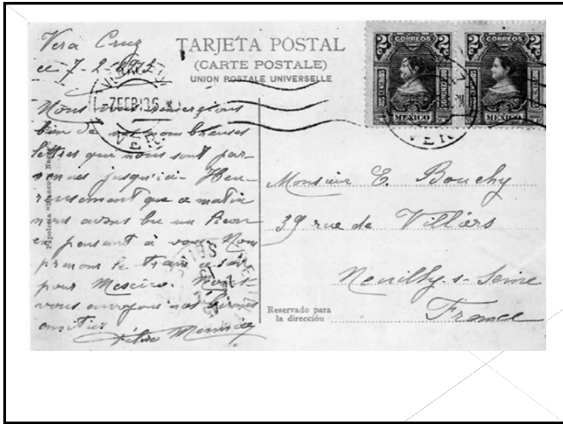 Vera Cruz
ce 7-2-1915
TARJETA POSTAL
(CARTE POSTALE)
UNION POSTALE UNIVERSELLE
2 CORREOS 2
MEXICO
2 CORREOS 2
MEXICO
7 FEB
VER.
Nous vous remercions
bien de vos nombreuses
lettres qui nous sont par-
venues jusqu'ici. Heu-
reusement que ce matin
nous avons bu un
en pensant à vous. Nous
prenons le train ce soir
pour Mexico. Nous
vous envoyons nos bonnes
amitiés
Monsieur E. Bouchy
39 rue de Villiers
Neuilly s- Seine
France
Reservado para
la dirección